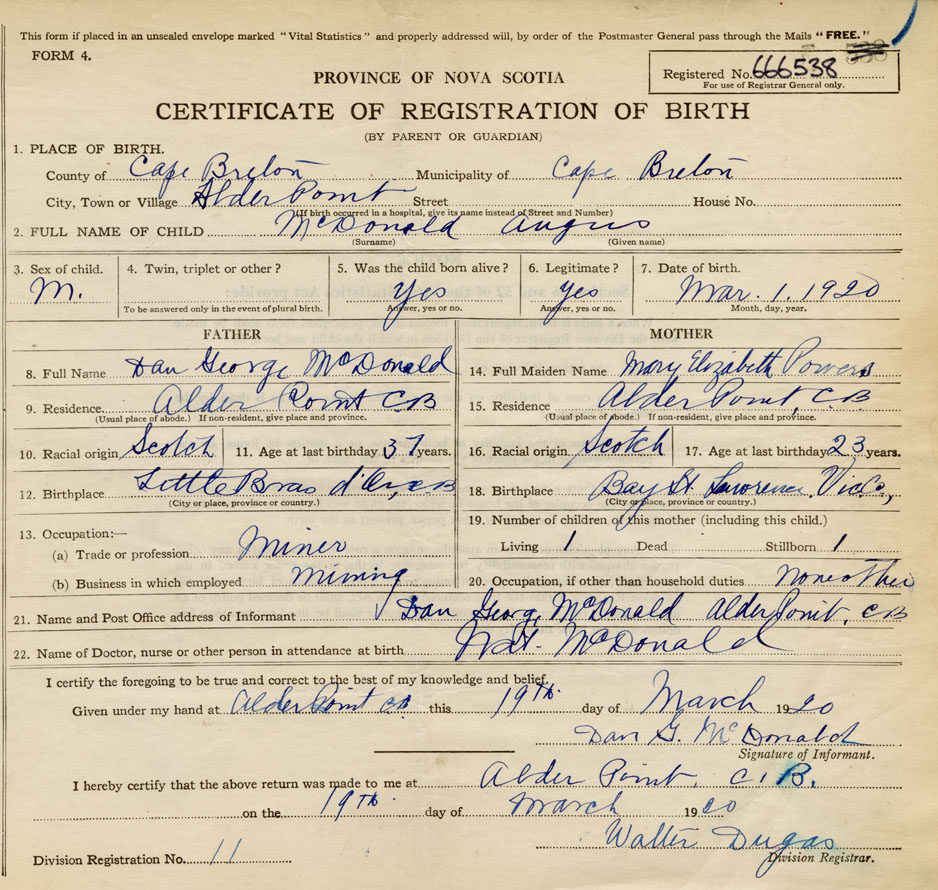 This form if placed in an unsealed envelope marked "Vital Statistics" and properly addressed will, by order of the Postmaster General pass through the Mails "FREE."
FORM 4.
PROVINCE OF NOVA SCOTIA
Registered No. 666538
For use of Registrar General only.
CERTIFICATE OF REGISTRATION OF BIRTH
(BY PARENT OR GUARDIAN)
1. PLACE OF BIRTH.
County of Cape Breton Municipality of Cape Breton
City, Town or Village Alder Point Street House No.
(If birth occurred in a hospital, give its name instead of Street and Number)
2. FULL NAME OF CHILD McDonald Angus
(Surname) (Given name)
3. Sex of child. 4. Twin, triplet or other? 5. Was the child born alive? 6. Legitimate? 7. Date of birth.
M. Yes Yes Mar. 1. 1920
To be answered only in the event of plural birth. Answer, yes or no. Answer, yes or no. Month, day, year.
FATHER
8. Full Name Dan George McDonald
9. Residence Alder Point C B
(Usual place of abode.) If non-resident, give place and province.
10. Racial origin Scotch 11. Age at last birthday 37 years.
12. Birthplace Little Bras d'Or, CB
(City or place, province or country.)
13. Occupation:—
(a) Trade or profession Miner
(b) Business in which employed Mining
MOTHER
14. Full Maiden Name Mary Elizabeth Powers
15. Residence Alder Point, C B
(Usual place of abode.) If non-resident, give place and province.
16. Racial origin Scotch 17. Age at last birthday 23 years.
18. Birthplace Bay St. Lawrence, Vic Co,
(City or place, province or country.)
19. Number of children of this mother (including this child.)
Living 1 Dead Stillborn 1
20. Occupation, if other than household duties none other
21. Name and Post Office address of Informant Dan George McDonald Alder Point, CB
22. Name of Doctor, nurse or other person in attendance at birth McDonald
I certify the foregoing to be true and correct to the best of my knowledge and belief.
Given under my hand at Alder Point CB this 19th. day of March 1920
Dan G. McDonald
Signature of Informant.
I hereby certify that the above return was made to me at Alder Point, C. B.
on the 19th. day of March 1920
Walter Dugas
Division Registrar.
Division Registration No. 11